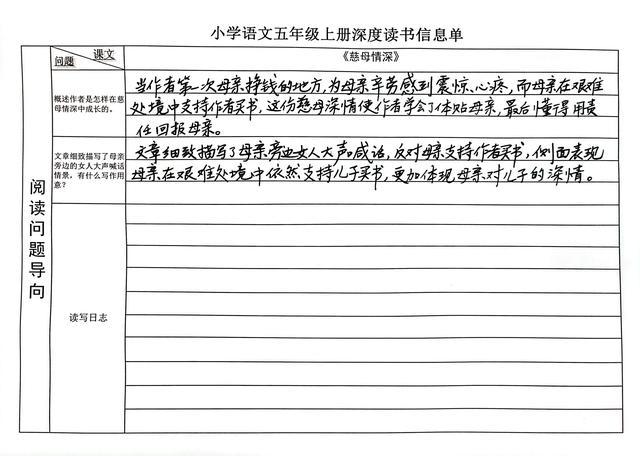 小学语文五年级上册深度读书信息单
课文
问题
《慈母情深》
阅读问题导向
概述作者是怎样在慈
母情深中成长的。
当作者第一次母亲挣钱的地方,为母亲辛劳感到震惊、心疼,而母亲在艰难
处境中支持作者买书,这份慈母深情使作者学会了体贴母亲,最后懂得用责
任回报母亲。
文章细致描写了母亲
旁边的女人大声喊话
情景,有什么写作用
意?
文章细致描写了母亲旁边女人大声喊话,反对母亲支持作者买书,侧面表现
母亲在艰难处境中依然支持儿子买书,更加体现母亲对儿子的深情。
读写日志